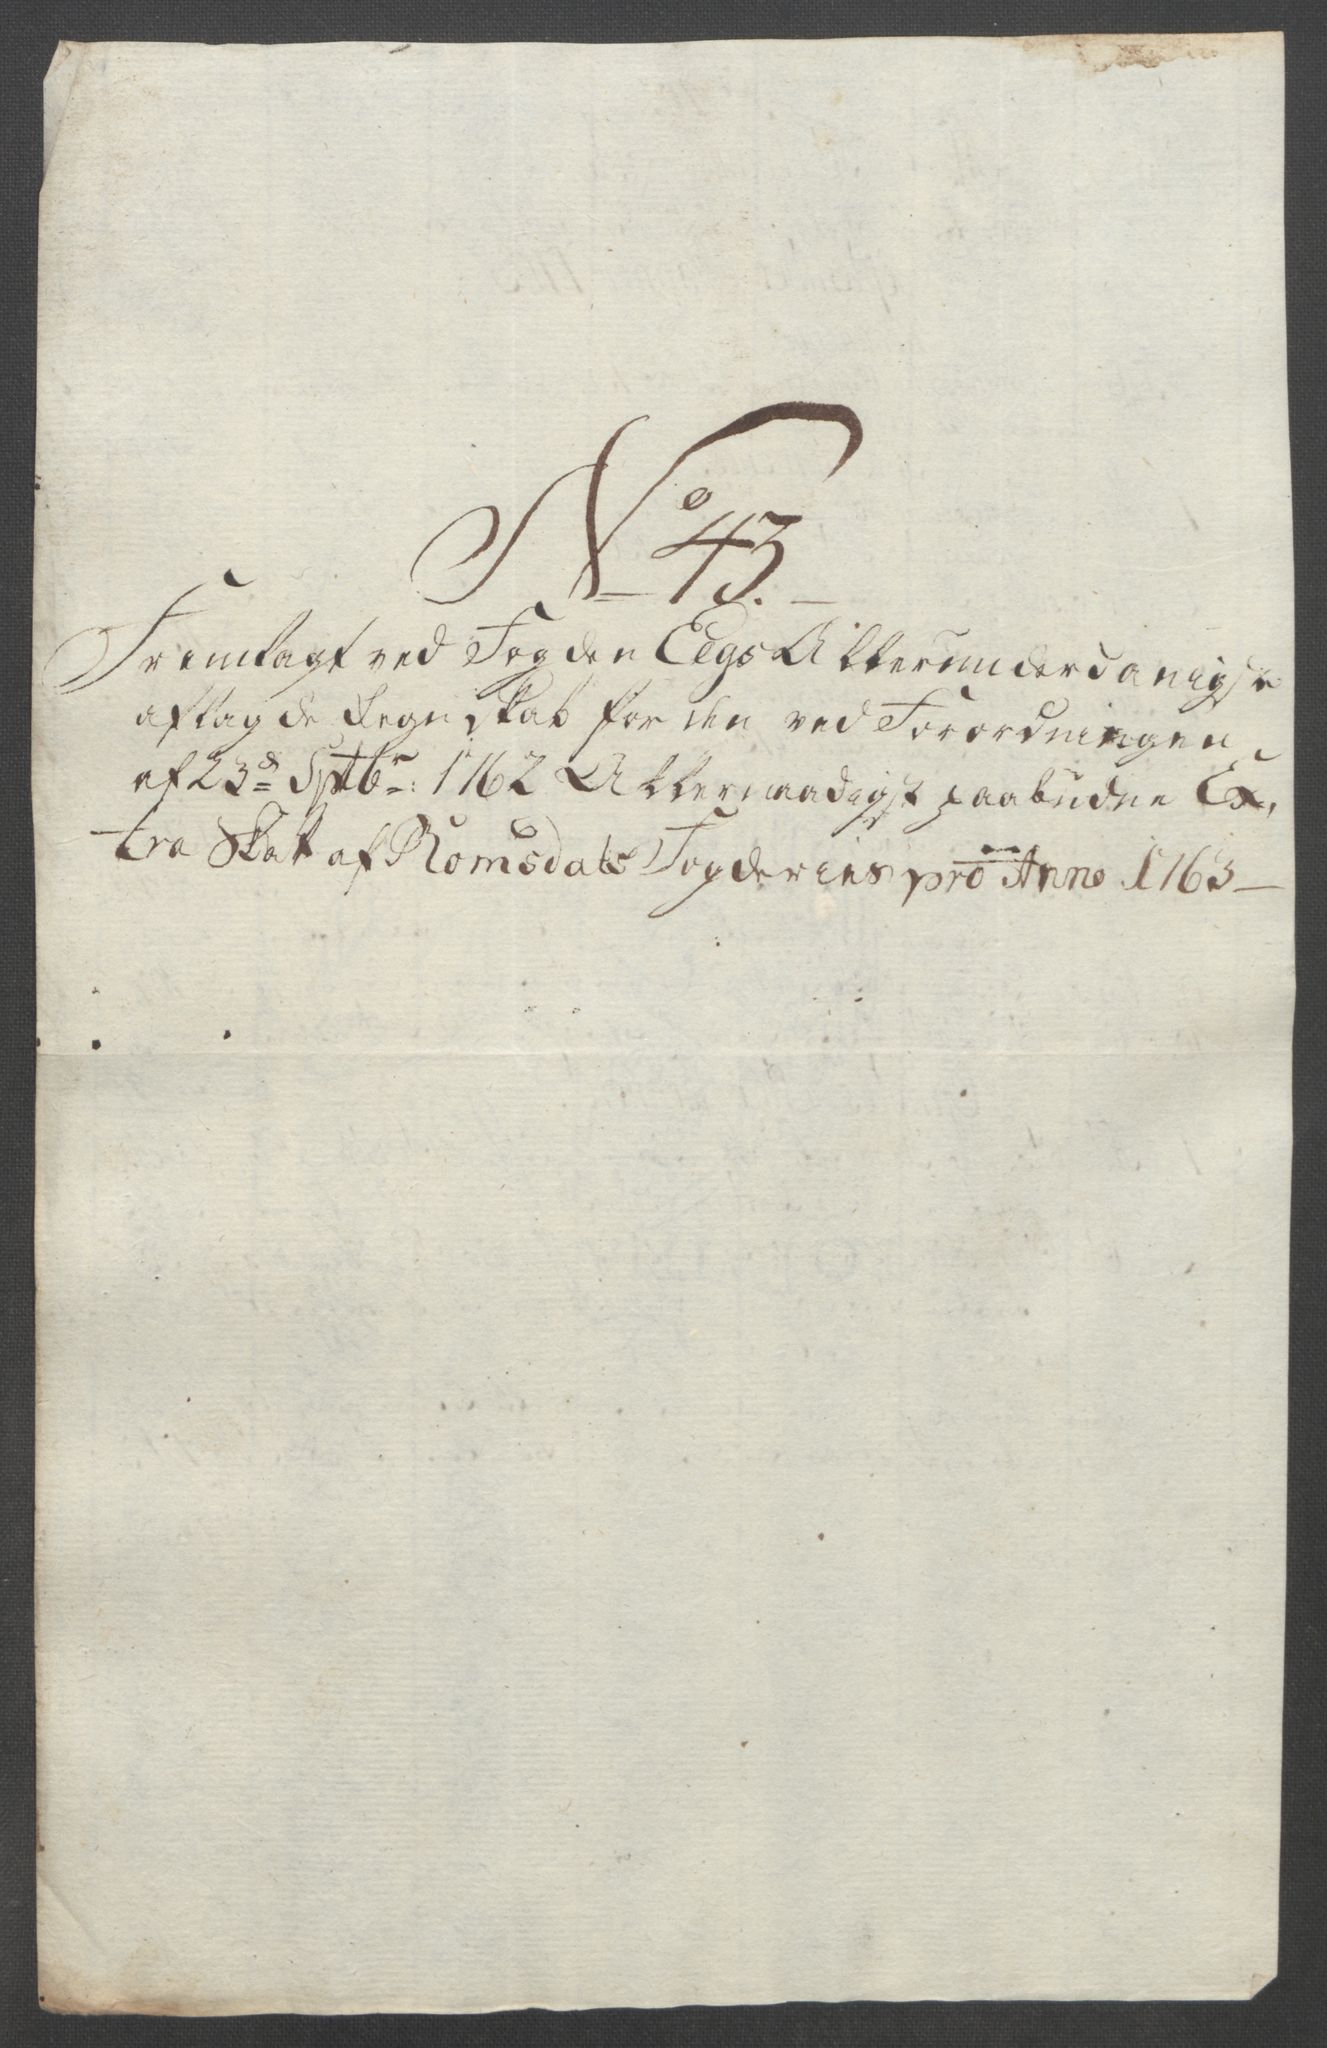 No 43.
Fremlagt ved Fogden Eegs Allerunderdanigste
aflagde Regnskab for den ved Forordningen
af 23de Septbr: 1762 Allernaadigst paabudne Ex,
tra Skat af Romsdals Fogderies pro Anno 1763